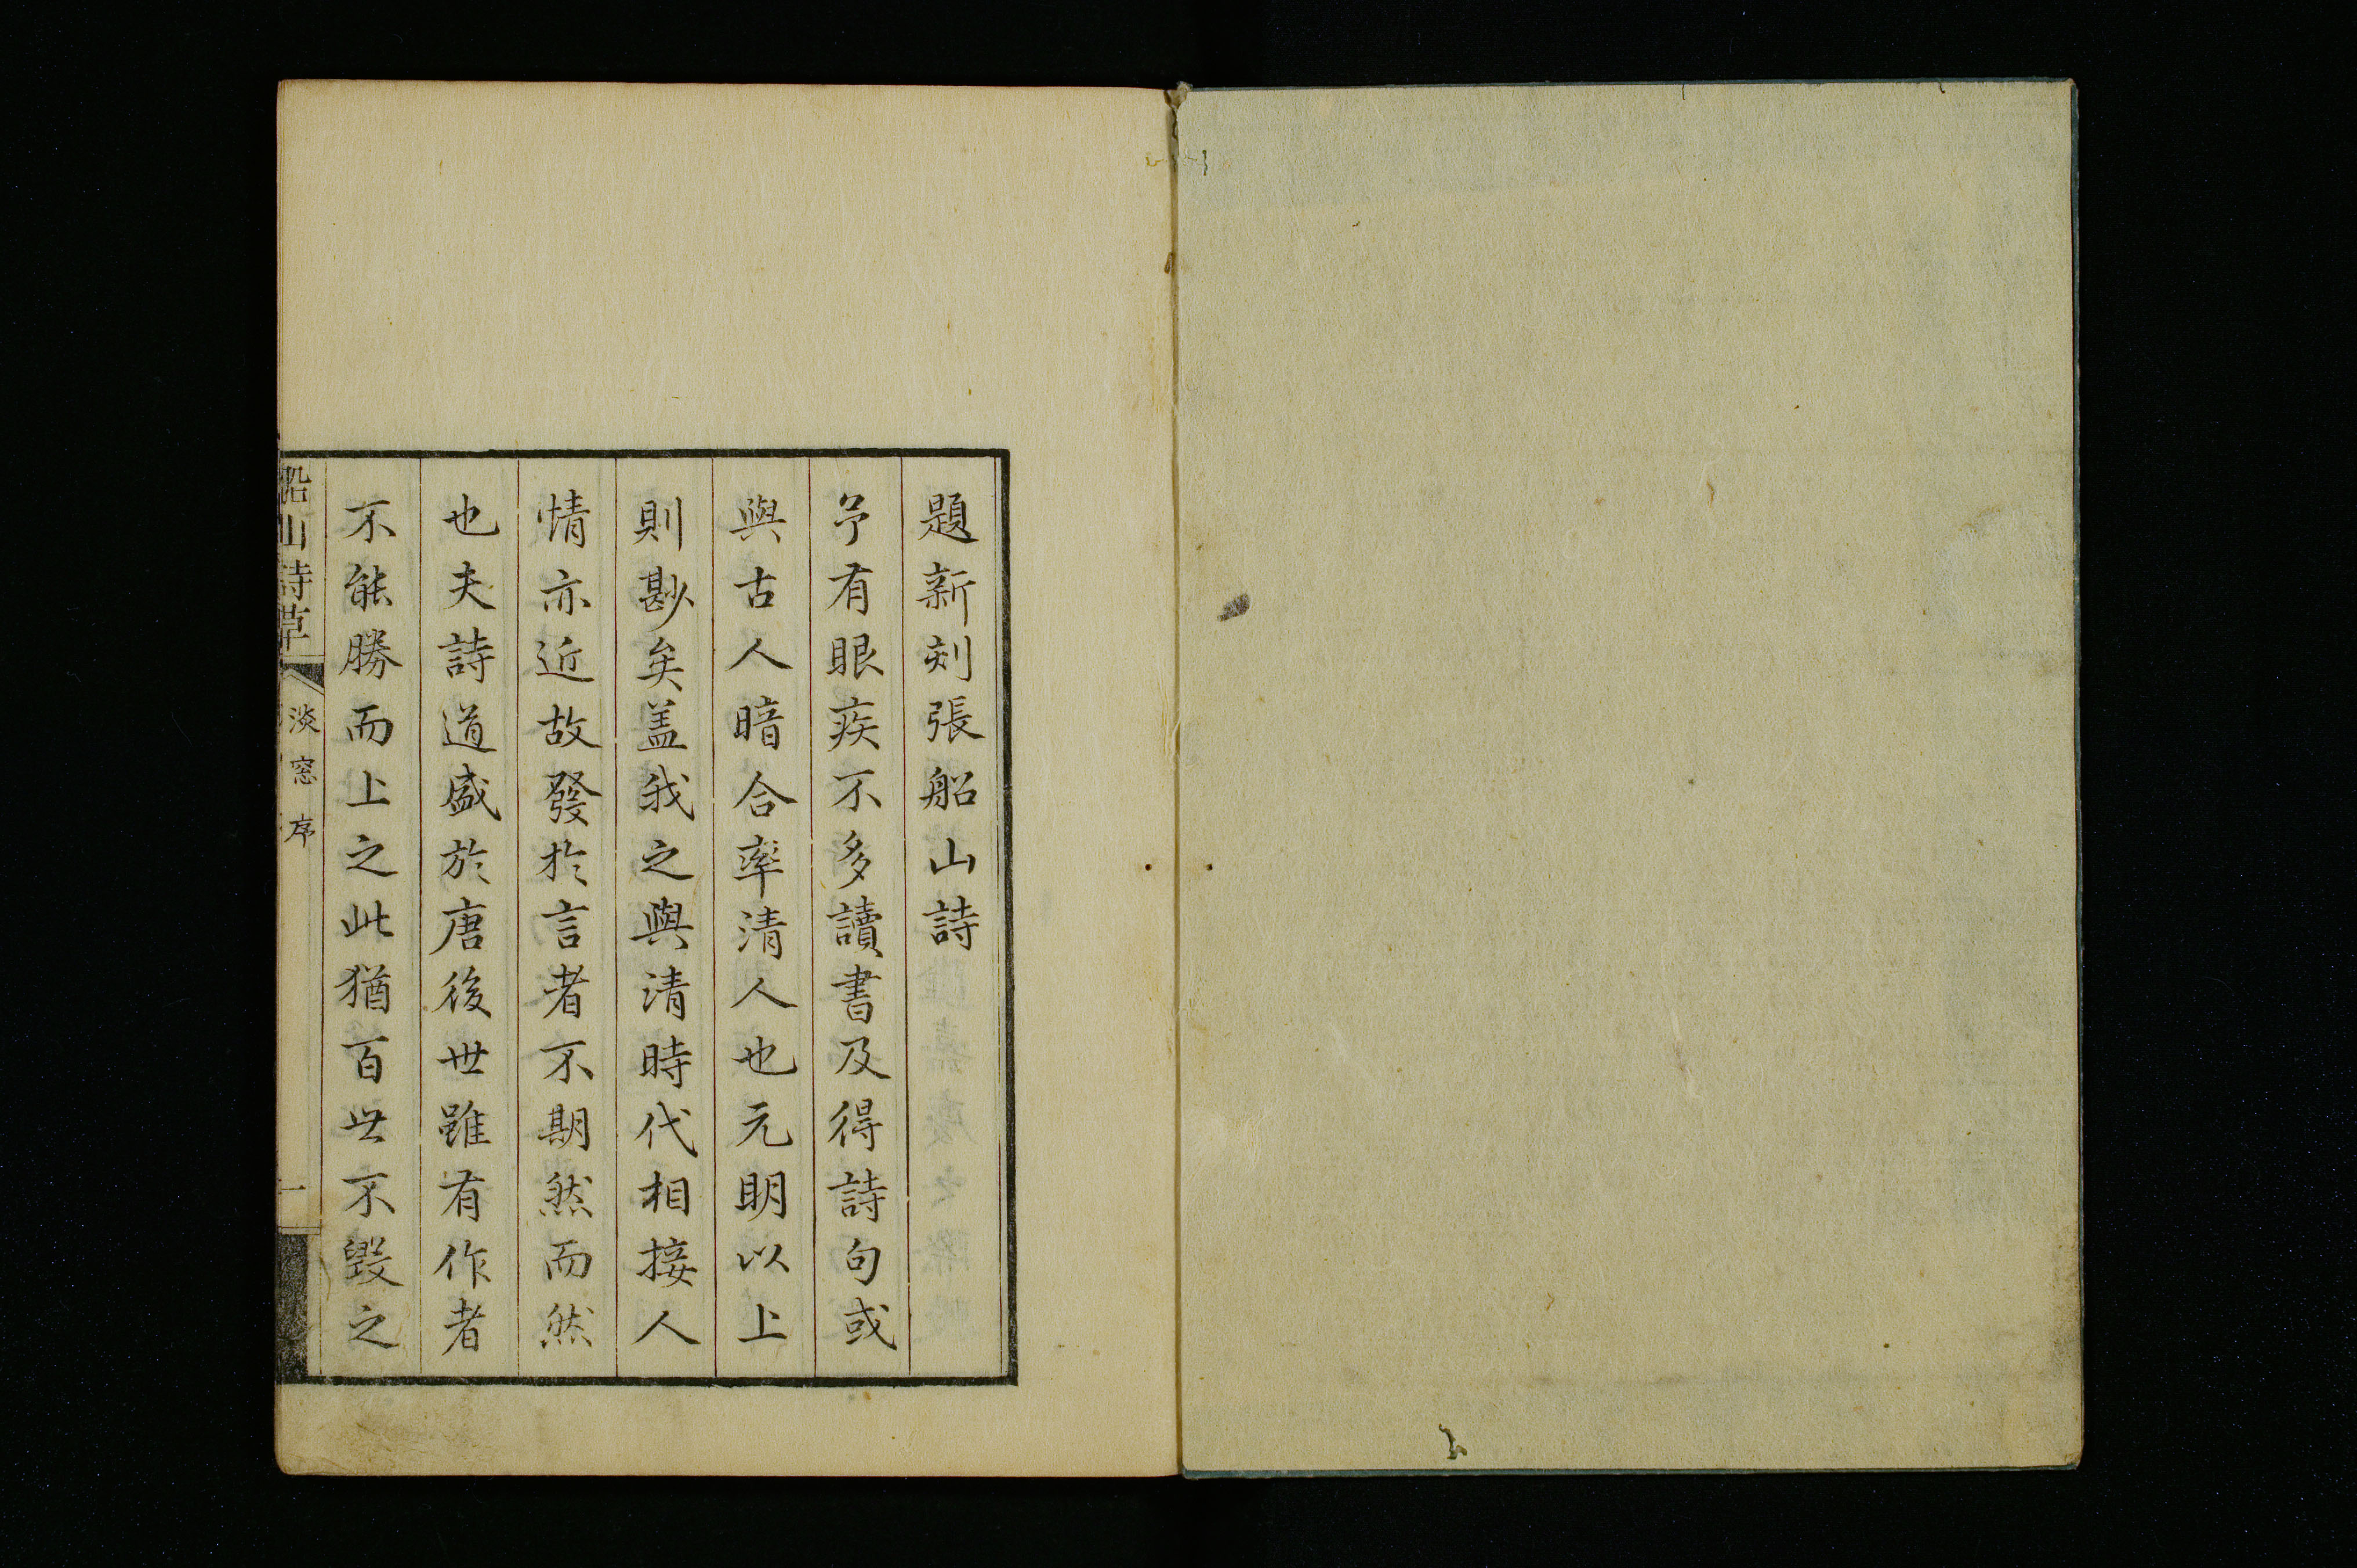 題新刻張船山詩
予有眼疾不多讀書及得詩句或
與古人暗合率清人也元明以上
則尠矣盖我之與清時代相接人
情亦近故發於言者不期然而然
也夫詩道盛於唐後世雖有作者
不能勝而上之此猶百世不毀之
船山詩草 淡窓序 一